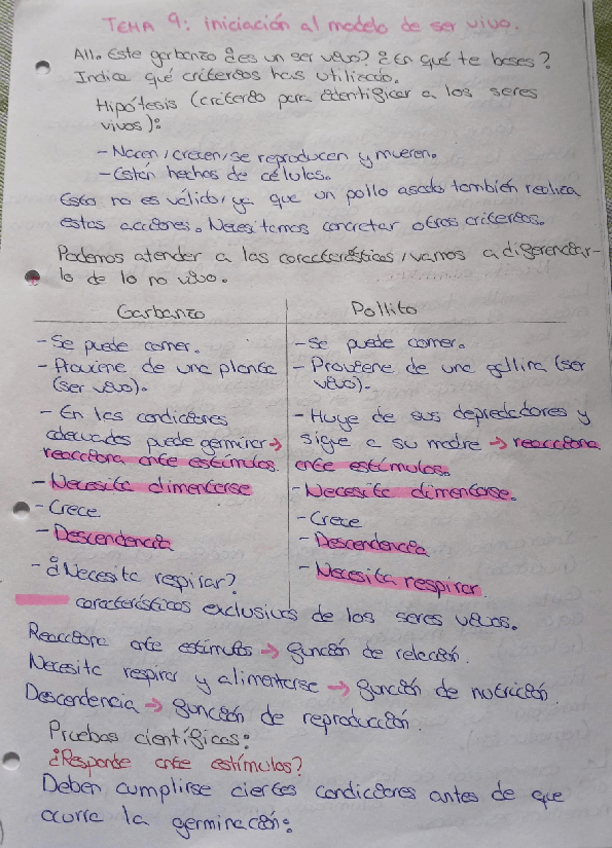 TEMA 9: iniciación al modelo de ser vivo.
A11. Este garbanzo ¿es un ser vivo? ¿En qué te bases?
Indica qué criterios has utilizado.
Hipótesis (criterio para identificar a los seres
vivos):
- Nacen, crecen, se reproducen y mueren.
- Están hechos de células.
Esto no es válido, ya que un pollo asado también realiza
estas acciones. Necesitamos concretar otros criterios.
Podemos atender a las características, vamos a diferenciar-
lo de lo no vivo.
Garbanzo
- Se puede comer.
- Proviene de una planta
(ser vivo).
- En las condiciones
adecuadas puede germinar →
reacciona ante estímulos.
- Necesita alimentarse
- Crece
- Descendencia
- ¿Necesita respirar?
Pollito
- Se puede comer.
- Proviene de una gallina (ser
vivo).
- Huye de sus depredadores y
sigue a su madre → reacciona
ante estímulos.
- Necesita alimentarse.
- Crece
- Descendencia
- Necesita respirar
características exclusivas de los seres vivos.
Reacciona ante estímulos → función de relación.
Necesita respirar y alimentarse → función de nutrición.
Descendencia → función de reproducción.
Pruebas científicas:
¿Responde ante estímulos?
Deben cumplirse ciertas condiciones antes de que
ocurra la germinación: